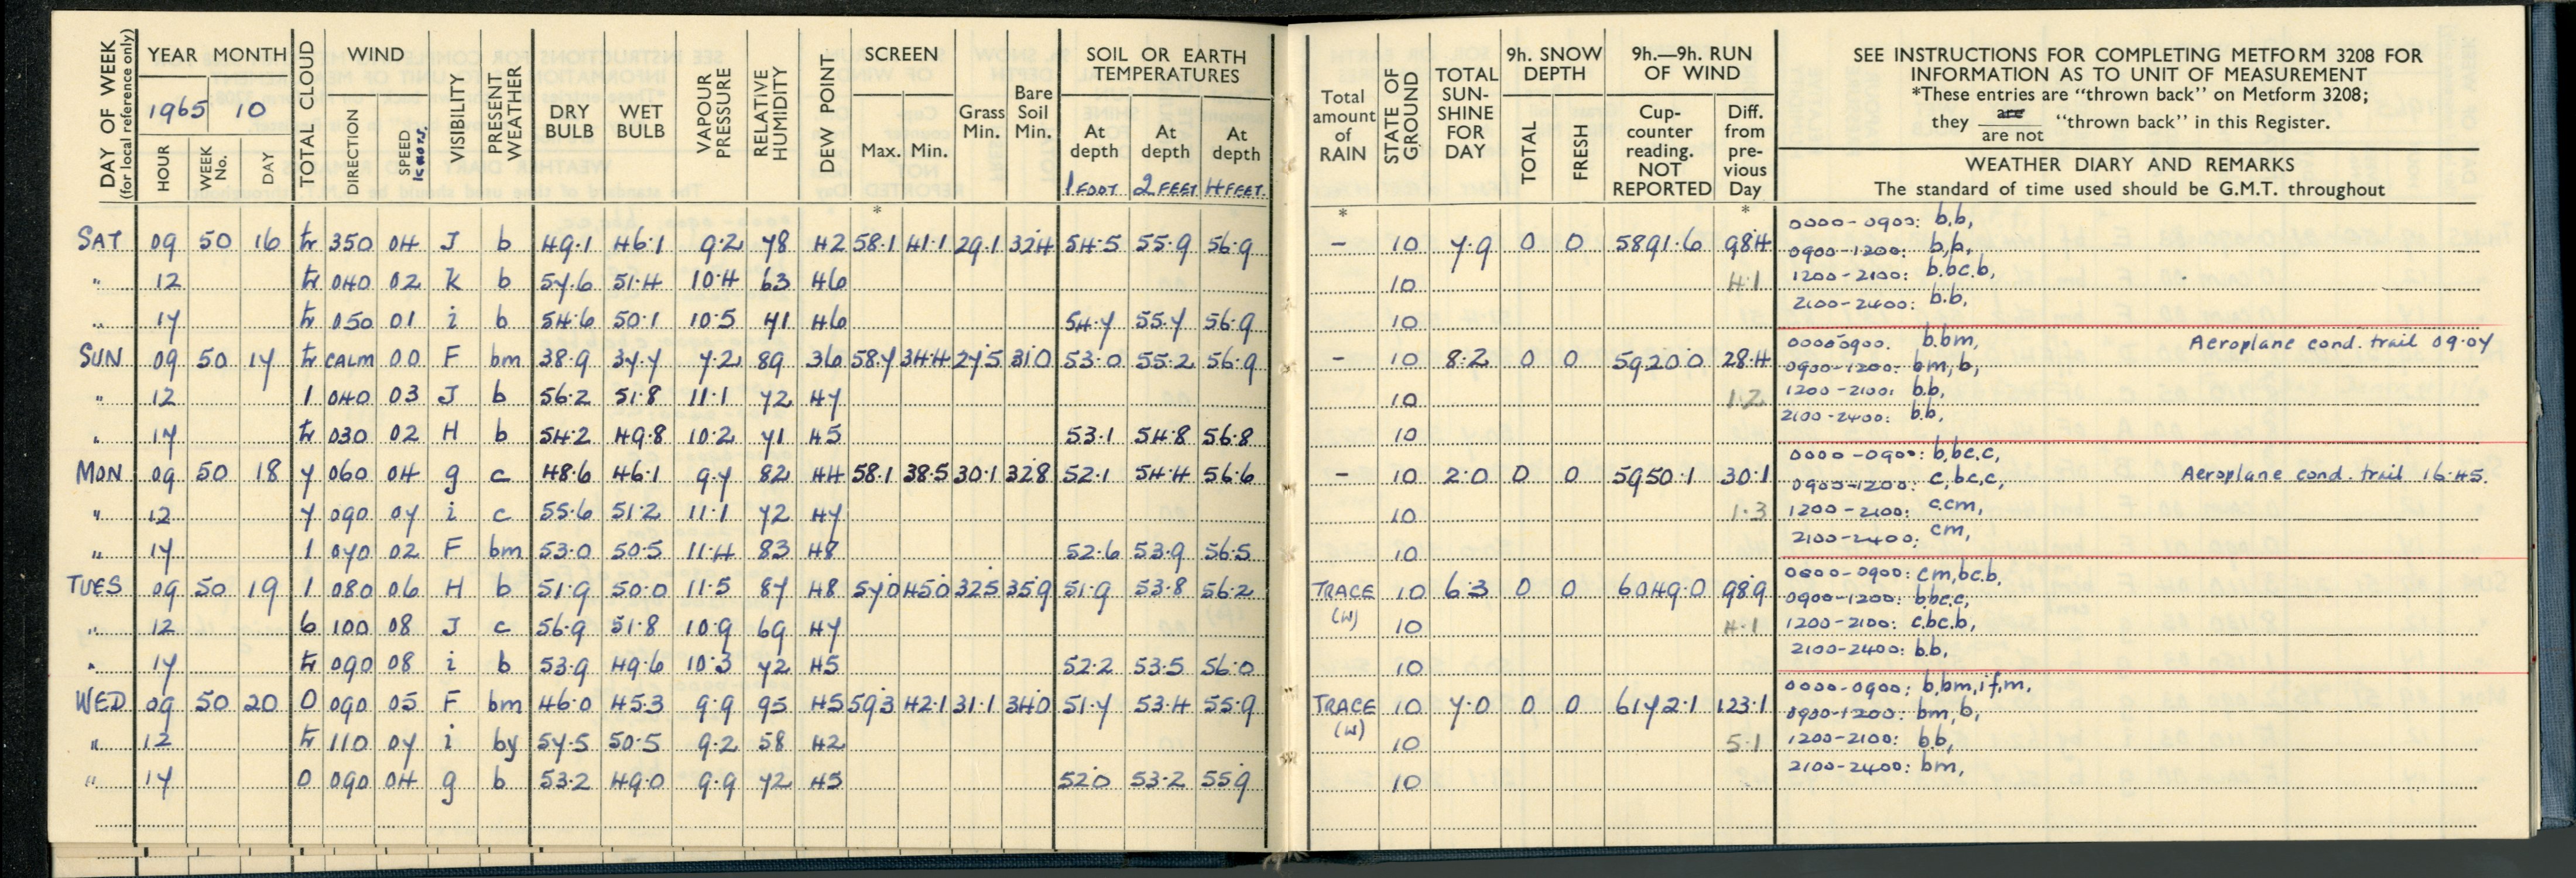 DAY OF WEEK (for local reference only)
YEAR MONTH
1965 10
HOUR WEEK No. DAY
TOTAL CLOUD
WIND
DIRECTION SPEED KNOTS.
VISIBILITY
PRESENT WEATHER
DRY BULB
WET BULB
VAPOUR PRESSURE
RELATIVE HUMIDITY
DEW POINT
SCREEN
Max. Min.
*
Grass Min.
Bare Soil Min.
SOIL OR EARTH TEMPERATURES
At depth At depth At depth
1 FOOT 2 FEET 4 FEET.
Total amount of RAIN
*
STATE OF GROUND
TOTAL SUN-SHINE FOR DAY
9h. SNOW DEPTH
TOTAL FRESH
9h.—9h. RUN OF WIND
Cup-counter reading. NOT REPORTED
Diff. from pre-vious Day
*
SEE INSTRUCTIONS FOR COMPLETING METFORM 3208 FOR
INFORMATION AS TO UNIT OF MEASUREMENT
*These entries are "thrown back" on Metform 3208;
they are / are not "thrown back" in this Register.
WEATHER DIARY AND REMARKS
The standard of time used should be G.M.T. throughout
SAT 09 50 16 tr 350 04 J b 49.1 46.1 9.2 78 42 58.1 41.1 29.1 32.4 54.5 55.9 56.9 – 10 7.9 0 0 5891.6 98.4
" 12 tr 040 02 K b 57.6 51.4 10.4 63 46 10 4.1
" 17 tr 050 01 i b 54.6 50.1 10.5 71 46 54.7 55.7 56.9 10
0000-0900: b.b,
0900-1200: b,b,
1200-2100: b.bc.b,
2100-2400: b.b,
SUN 09 50 17 tr CALM 00 F bm 38.9 37.7 7.2 89 36 58.7 34.4 27.5 31.0 53.0 55.2 56.9 – 10 8.2 0 0 5920.0 28.4
" 12 1 040 03 J b 56.2 51.8 11.1 72 47 10 1.2
" 17 tr 030 02 H b 54.2 49.8 10.2 71 45 53.1 54.8 56.8 10
0000-0900. b.bm, Aeroplane cond. trail 09.07
0900-1200: bm,b,
1200-2100: b.b,
2100-2400: b.b,
MON 09 50 18 7 060 04 g c 48.6 46.1 9.7 82 44 58.1 38.5 30.1 32.8 52.1 54.4 56.6 – 10 2.0 0 0 5950.1 30.1
" 12 7 090 07 i c 55.6 51.2 11.1 72 47 10 1.3
" 17 1 070 02 F bm 53.0 50.5 11.4 83 48 52.6 53.9 56.5 10
0000-0900: b,bc.c,
0900-1200: c,bc,c, Aeroplane cond. trail 16.45.
1200-2100: c.cm,
2100-2400: cm,
TUES 09 50 19 1 080 06 H b 51.9 50.0 11.5 87 48 57.0 45.0 32.5 35.9 51.9 53.8 56.2 TRACE (W) 10 6.3 0 0 6049.0 98.9
" 12 6 100 08 J c 56.9 51.8 10.9 69 47 10 4.1
" 17 tr 090 08 i b 53.9 49.6 10.3 72 45 52.2 53.5 56.0 10
0000-0900: cm,bc.b,
0900-1200: b.bc.c,
1200-2100: c.bc.b,
2100-2400: b.b,
WED 09 50 20 0 090 05 F bm 46.0 45.3 9.9 95 45 59.3 42.1 31.1 34.0 51.7 53.4 55.9 TRACE (W) 10 7.0 0 0 6172.1 123.1
" 12 tr 110 07 i by 57.5 50.5 9.2 58 42 10 5.1
" 17 0 090 04 g b 53.2 49.0 9.9 72 45 52.0 53.2 55.9 10
0000-0900: b,bm,if,m,
0900-1200: bm,b,
1200-2100: b.b,
2100-2400: bm,